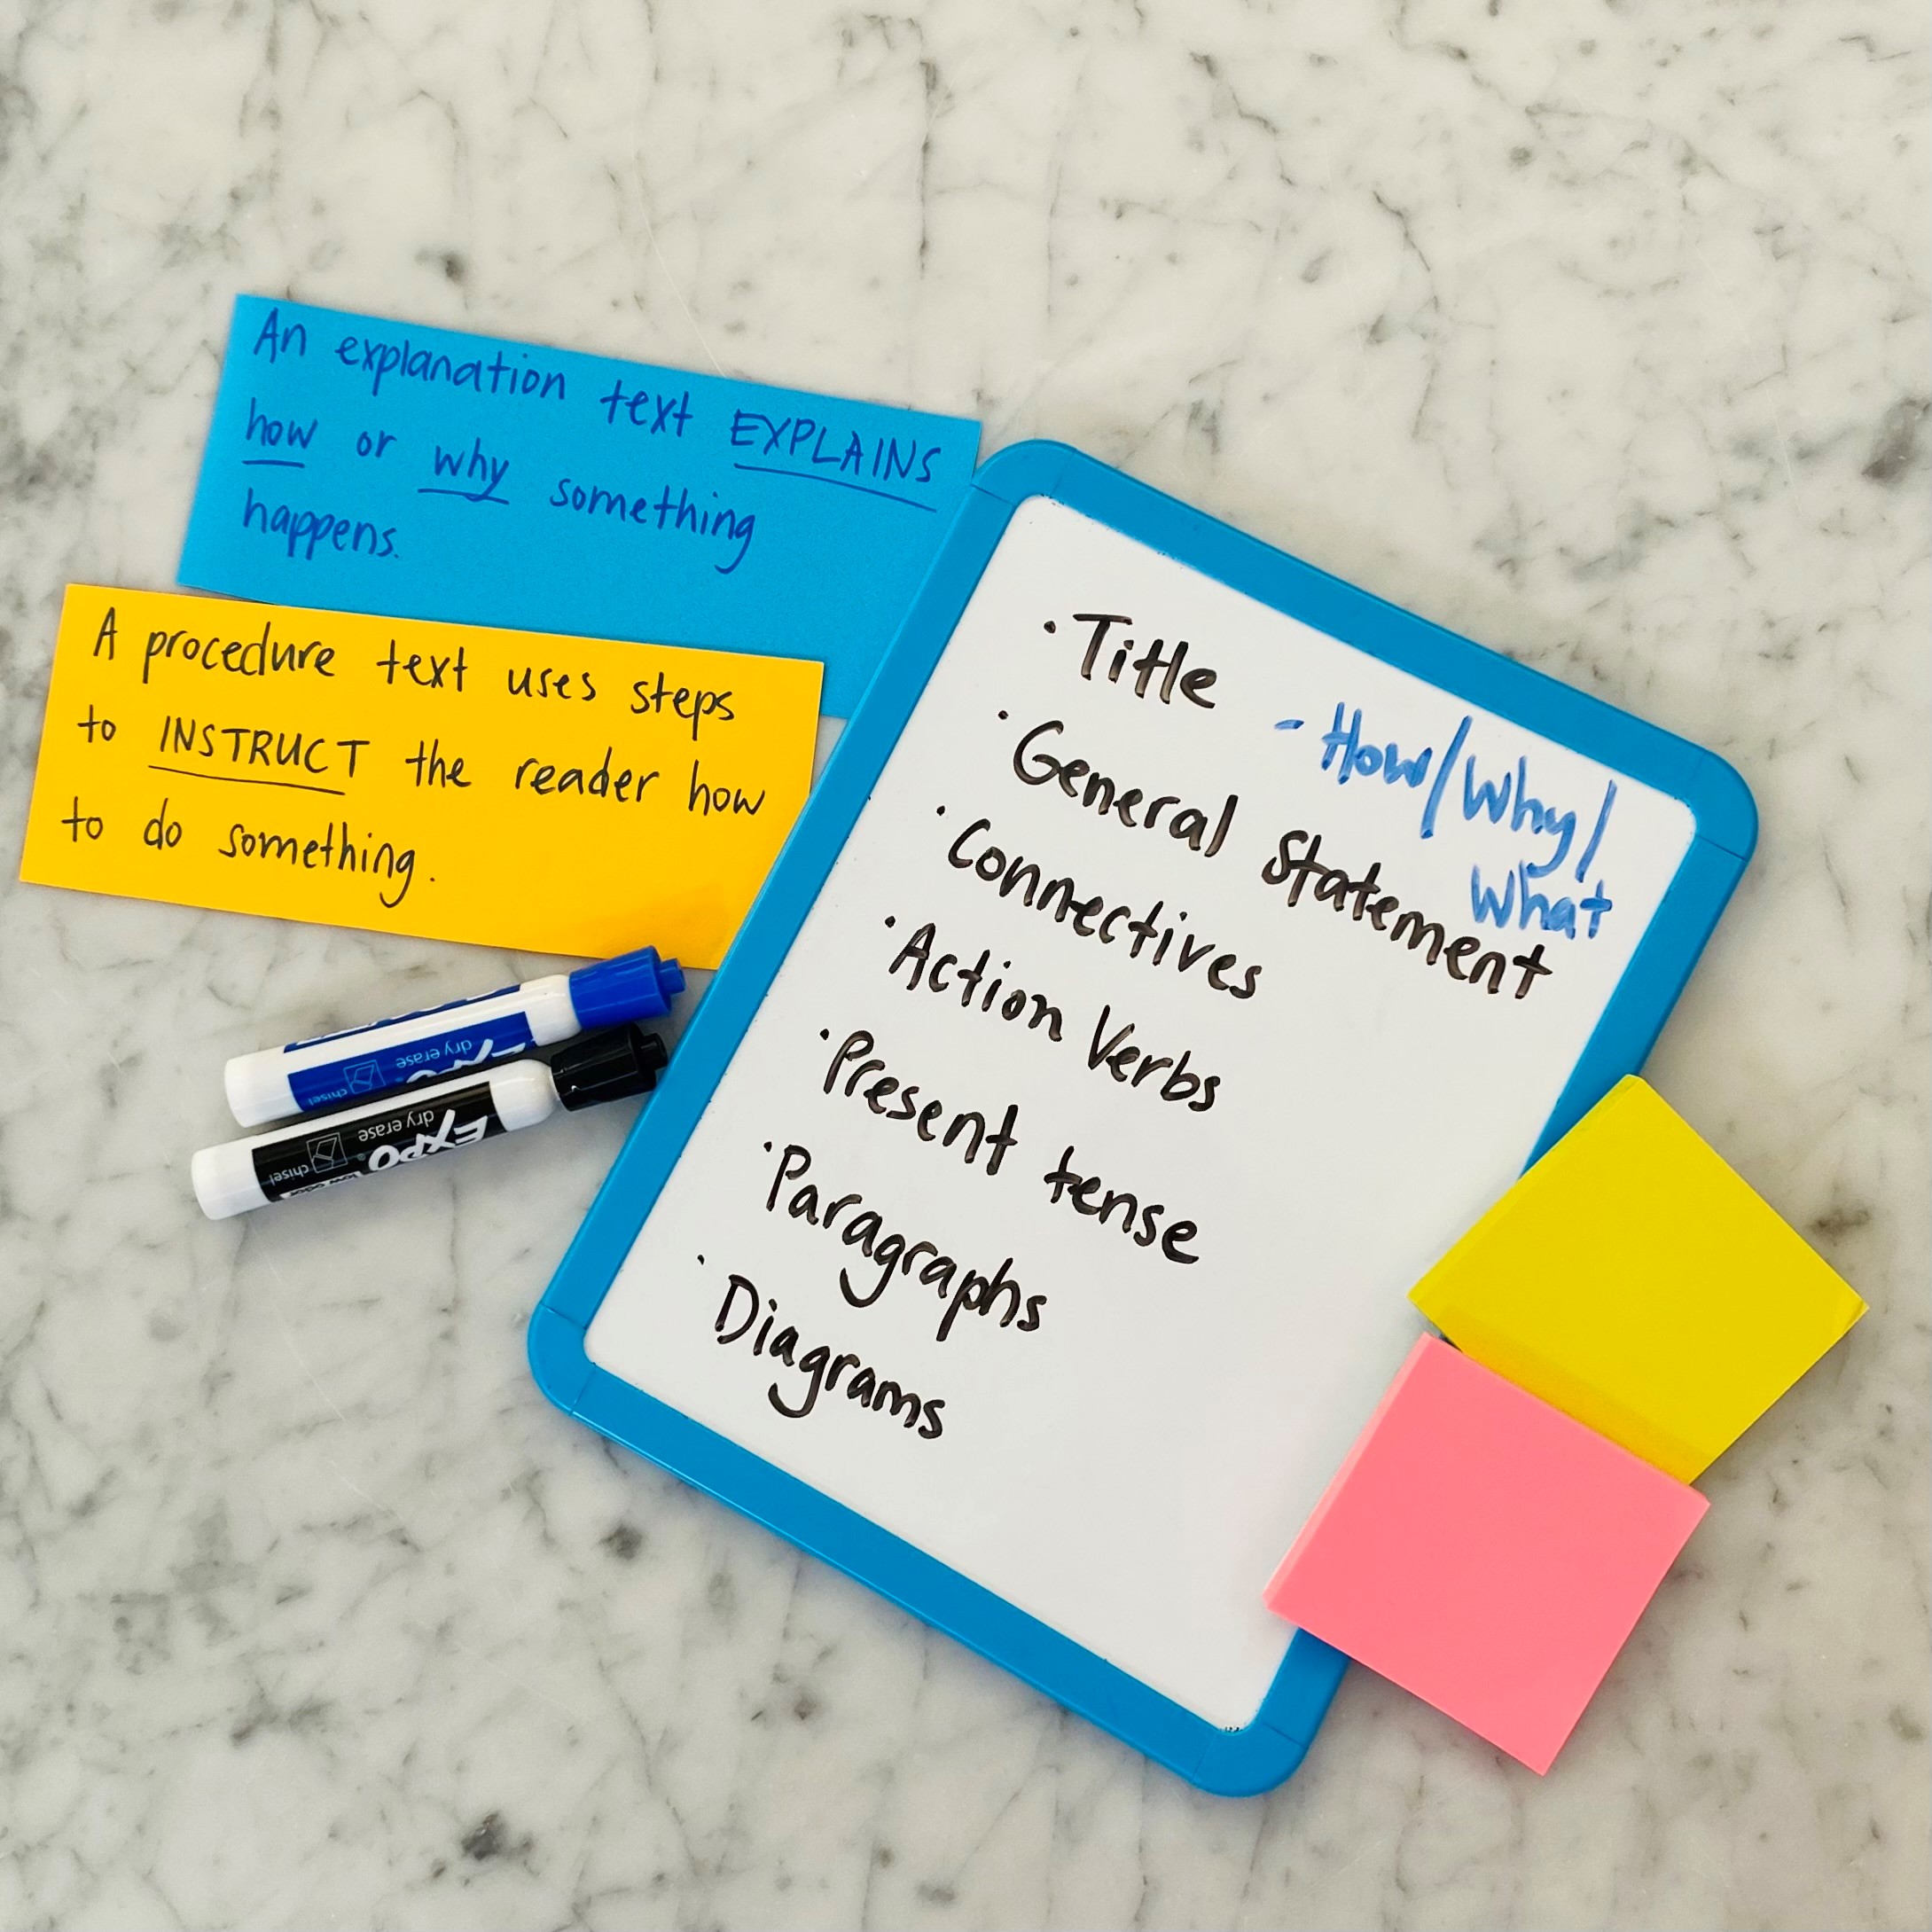 An explanation text EXPLAINS
how or why something
happens.
A procedure text uses steps
to INSTRUCT the reader how
to do something.
• Title - How/Why/
What
• General Statement
• Connectives
• Action Verbs
• Present tense
• Paragraphs
• Diagrams
dry erase
chisel
EXPO
dry erase
chisel
low odor